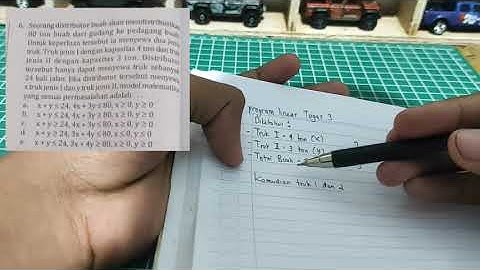 6. Seorang distributor buah akan mendistribusikan
80 ton buah dari gudang ke pedagang buah.
Untuk keperluan tersebut ia menyewa dua jenis
truk. Truk jenis I dengan kapasitas 4 ton dan truk
jenis II dengan kapasitas 3 ton. Distributor
tersebut hanya dapat menyewa truk sebanyak
24 kali jalan. Jika distributor tersebut menyewa
x truk jenis I dan y truk jenis II, model matematika
yang sesuai permasalahan adalah
a. x + y ≤ 24, 4x + 3y ≤ 80, x ≥ 0, y ≥ 0
b. x + y ≤ 24, 4x + 3y ≥ 80, x ≥ 0, y ≥ 0
c. x + y ≤ 24, 3x + 4y ≤ 80, x ≥ 0, y ≥ 0
d. x + y ≤ 24, 3x + 4y ≤ 80, x ≤ 0, y ≤ 0
e. x + y ≤ 24, 3x + 4y ≥ 80, x ≥ 0, y ≥ 0
Program linear Tugas 3
Diketahui :
- Truk I = 4 ton (x)
- Truk II = 3 ton (y)
- Total Buah
Kemudian truk 1 dan 2